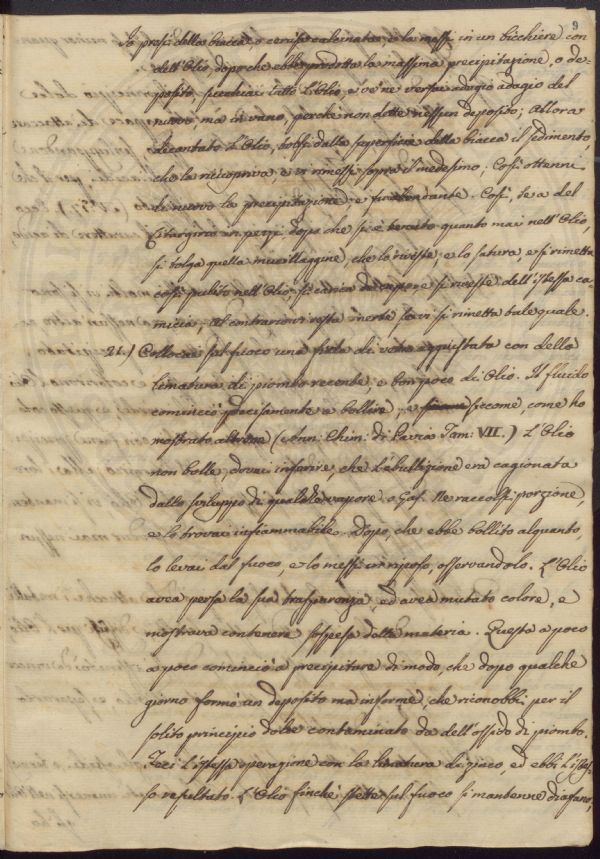 9
Io presi della biacca, o cerussa calcinata, e la messi in un bicchiere con
dell'Olio, dopo che ebbe prodotta la massima precipitazione, o de-
posito, seccai tutto l'Olio, e ve ne versai adagio adagio del
nuovo ma in vano, perchè non dette nessun deposito; Allora
decantato l'Olio, tolsi dalla superficie della biacca il sedimento,
che la ricopriva, e vi rimessi sopra il medesimo; Così ottenni
di nuovo la precipitazione, e fu abbondante. Così, se a del
Litargirio in pezzi dopo che si è tenuto quanto mai nell'Olio,
si tolga quella mucillaggine, che lo riveste, e lo satura, e si rimetta
così pulito nell'Olio, si carica e si riveste dell'istessa ca-
micia; Al contrario vi resta inerte se vi si rimetta tale quale.
21.) Collocai sul fuoco una fiala di vetro aggiustata con della
limatura di piombo recente, e con poco di Olio. Il fluido
cominciò precisamente a bollire, e siccome, come ho
mostrato altrove (Ann: Chim: di Pavia Tom: VII.) L'Olio
non bolle, dovei inferire, che l'ebullizione era cagionata
dallo sviluppo di qualche vapore o Gas. Ne raccolsi porzione,
e lo trovai infiammabile. Dopo, che ebbe bollito alquanto,
lo levai dal fuoco, e lo messi in riposo, osservandolo. L'Olio
avea persa la sua trasparenza, ed avea mutato colore, e
mostrava contenere sospesa della materia. Questa a poco
a poco cominciò a precipitare di modo, che dopo qualche
giorno formò un deposito ma informe, che riconobbi per il
solito principio dolce contaminato da dell'ossido di piombo.
Feci l'istessa operazione con la limatura di zinco, ed ebbi l'istes-
so resultato. L'Olio finchè stette sul fuoco si mantenne diafano,